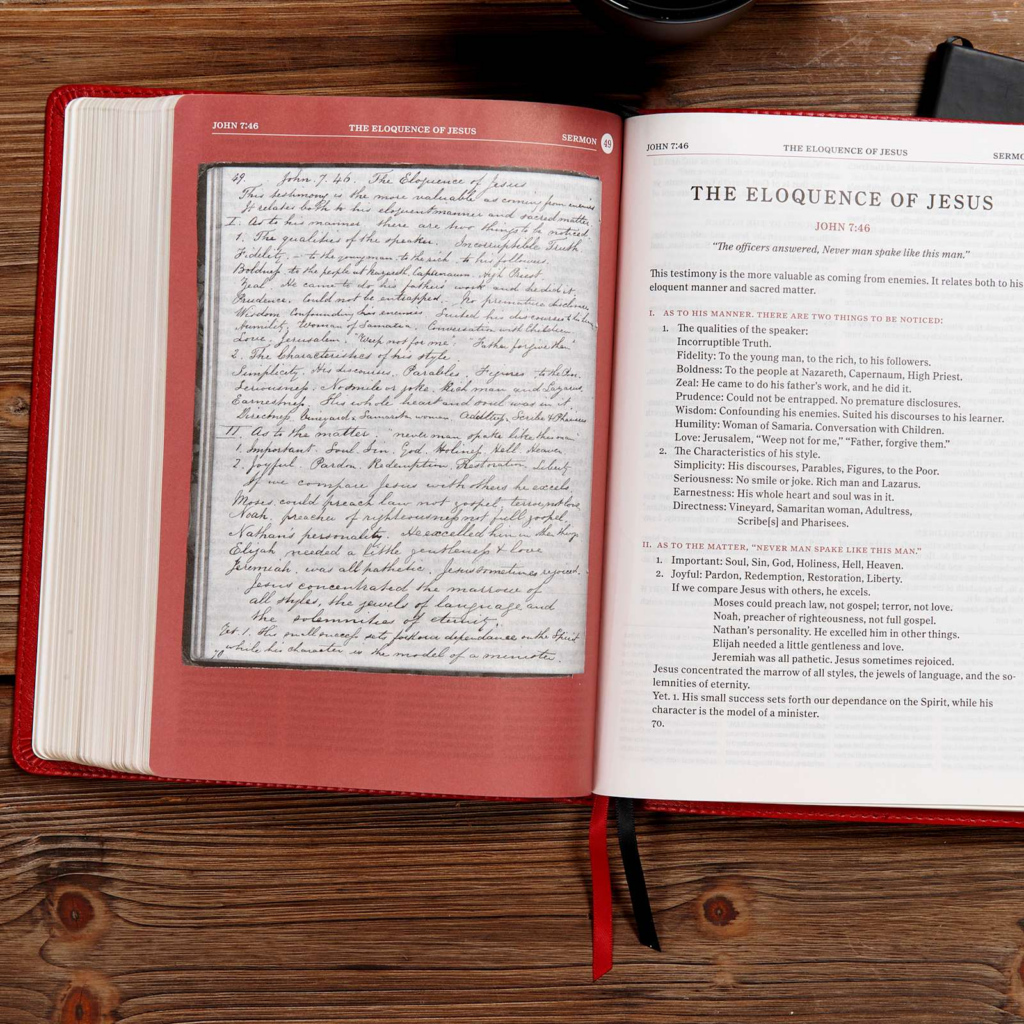 JOHN 7:46 THE ELOQUENCE OF JESUS SERMON 49
49. John. 7. 46. The Eloquence of Jesus
This testimony is the more valuable as coming from enemies.
It relates both to his eloquent manner and sacred matter.
I. As to his manner there are two things to be noticed.
1. The qualities of the speaker. Incorruptible Truth
Fidelity, – to the young man, to the rich, to his followers.
Boldness, to the people at Nazareth, Capernaum, High Priest.
Zeal. He came to do his fathers work and he did it.
Prudence. Could not be entrapped. No premature disclosures
Wisdom. Confounding his enemies. Suited his discourses to his
Humility, Woman of Samaria. Conversation with Children
Love, Jerusalem, "Weep not for me" "Father forgive them"
2. The Characteristics of his style.
Simplicity. His discourses, Parables, Figures – to the Poor.
Seriousness. No smile or joke. Rich man and Lazarus.
Earnestness. His whole heart and soul was in it.
Directness, Vineyard, Samarit. woman, Adultress, Scribe & Pharisees
II. As to the matter, "never man spake like this man"
1. Important. Soul, Sin, God, Holiness, Hell, Heaven
2. Joyful. Pardon, Redemption, Restoration, Liberty.
If we compare Jesus with others he excels.
Moses could preach law not gospel, terror, not love
Noah, preacher of righteousness not full gospel.
Nathans personality. He excelled him in other things
Elijah needed a little gentleness & love
Jeremiah, was all pathetic, Jesus sometimes rejoiced.
Jesus concentrated the marrow of
all styles, the jewels of language and
the solemnities of eternity.
Yet. 1. His small success sets forth our dependance on the Spirit
70 while his character is the model of a minister.
JOHN 7:46 THE ELOQUENCE OF JESUS SERMO
THE ELOQUENCE OF JESUS
JOHN 7:46
"The officers answered, Never man spake like this man."
This testimony is the more valuable as coming from enemies. It relates both to his
eloquent manner and sacred matter.
I. AS TO HIS MANNER. THERE ARE TWO THINGS TO BE NOTICED:
1. The qualities of the speaker:
Incorruptible Truth.
Fidelity: To the young man, to the rich, to his followers.
Boldness: To the people at Nazareth, Capernaum, High Priest.
Zeal: He came to do his father's work, and he did it.
Prudence: Could not be entrapped. No premature disclosures.
Wisdom: Confounding his enemies. Suited his discourses to his learner.
Humility: Woman of Samaria. Conversation with Children.
Love: Jerusalem, "Weep not for me," "Father, forgive them."
2. The Characteristics of his style.
Simplicity: His discourses, Parables, Figures, to the Poor.
Seriousness: No smile or joke. Rich man and Lazarus.
Earnestness: His whole heart and soul was in it.
Directness: Vineyard, Samaritan woman, Adultress,
Scribe[s] and Pharisees.
II. AS TO THE MATTER, "NEVER MAN SPAKE LIKE THIS MAN."
1. Important: Soul, Sin, God, Holiness, Hell, Heaven.
2. Joyful: Pardon, Redemption, Restoration, Liberty.
If we compare Jesus with others, he excels.
Moses could preach law, not gospel; terror, not love.
Noah, preacher of righteousness, not full gospel.
Nathan's personality. He excelled him in other things.
Elijah needed a little gentleness and love.
Jeremiah was all pathetic. Jesus sometimes rejoiced.
Jesus concentrated the marrow of all styles, the jewels of language, and the so-
lemnities of eternity.
Yet. 1. His small success sets forth our dependance on the Spirit, while his
character is the model of a minister.
70.